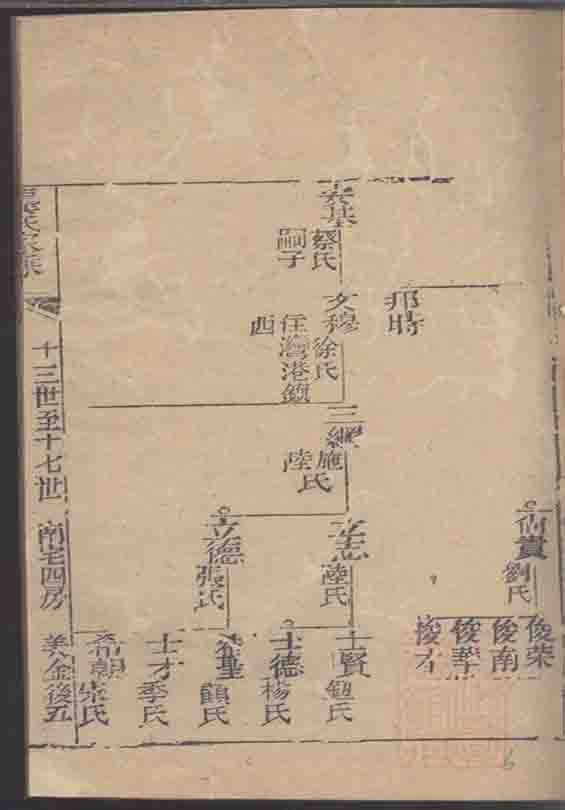 佔貴
劉氏
俊荣
俊南
俊華
俊才
邦時
泰基
蔡氏
嗣子
文穆
徐氏
住灣港鎮
西
三綱
施氏
陸
立志
陸氏
士賢
鈕氏
士德
楊氏
立德
張氏
顧氏
士才
季氏
希朝
朱氏
氏家乘
十三世至十七世
南宅四房
美金後五